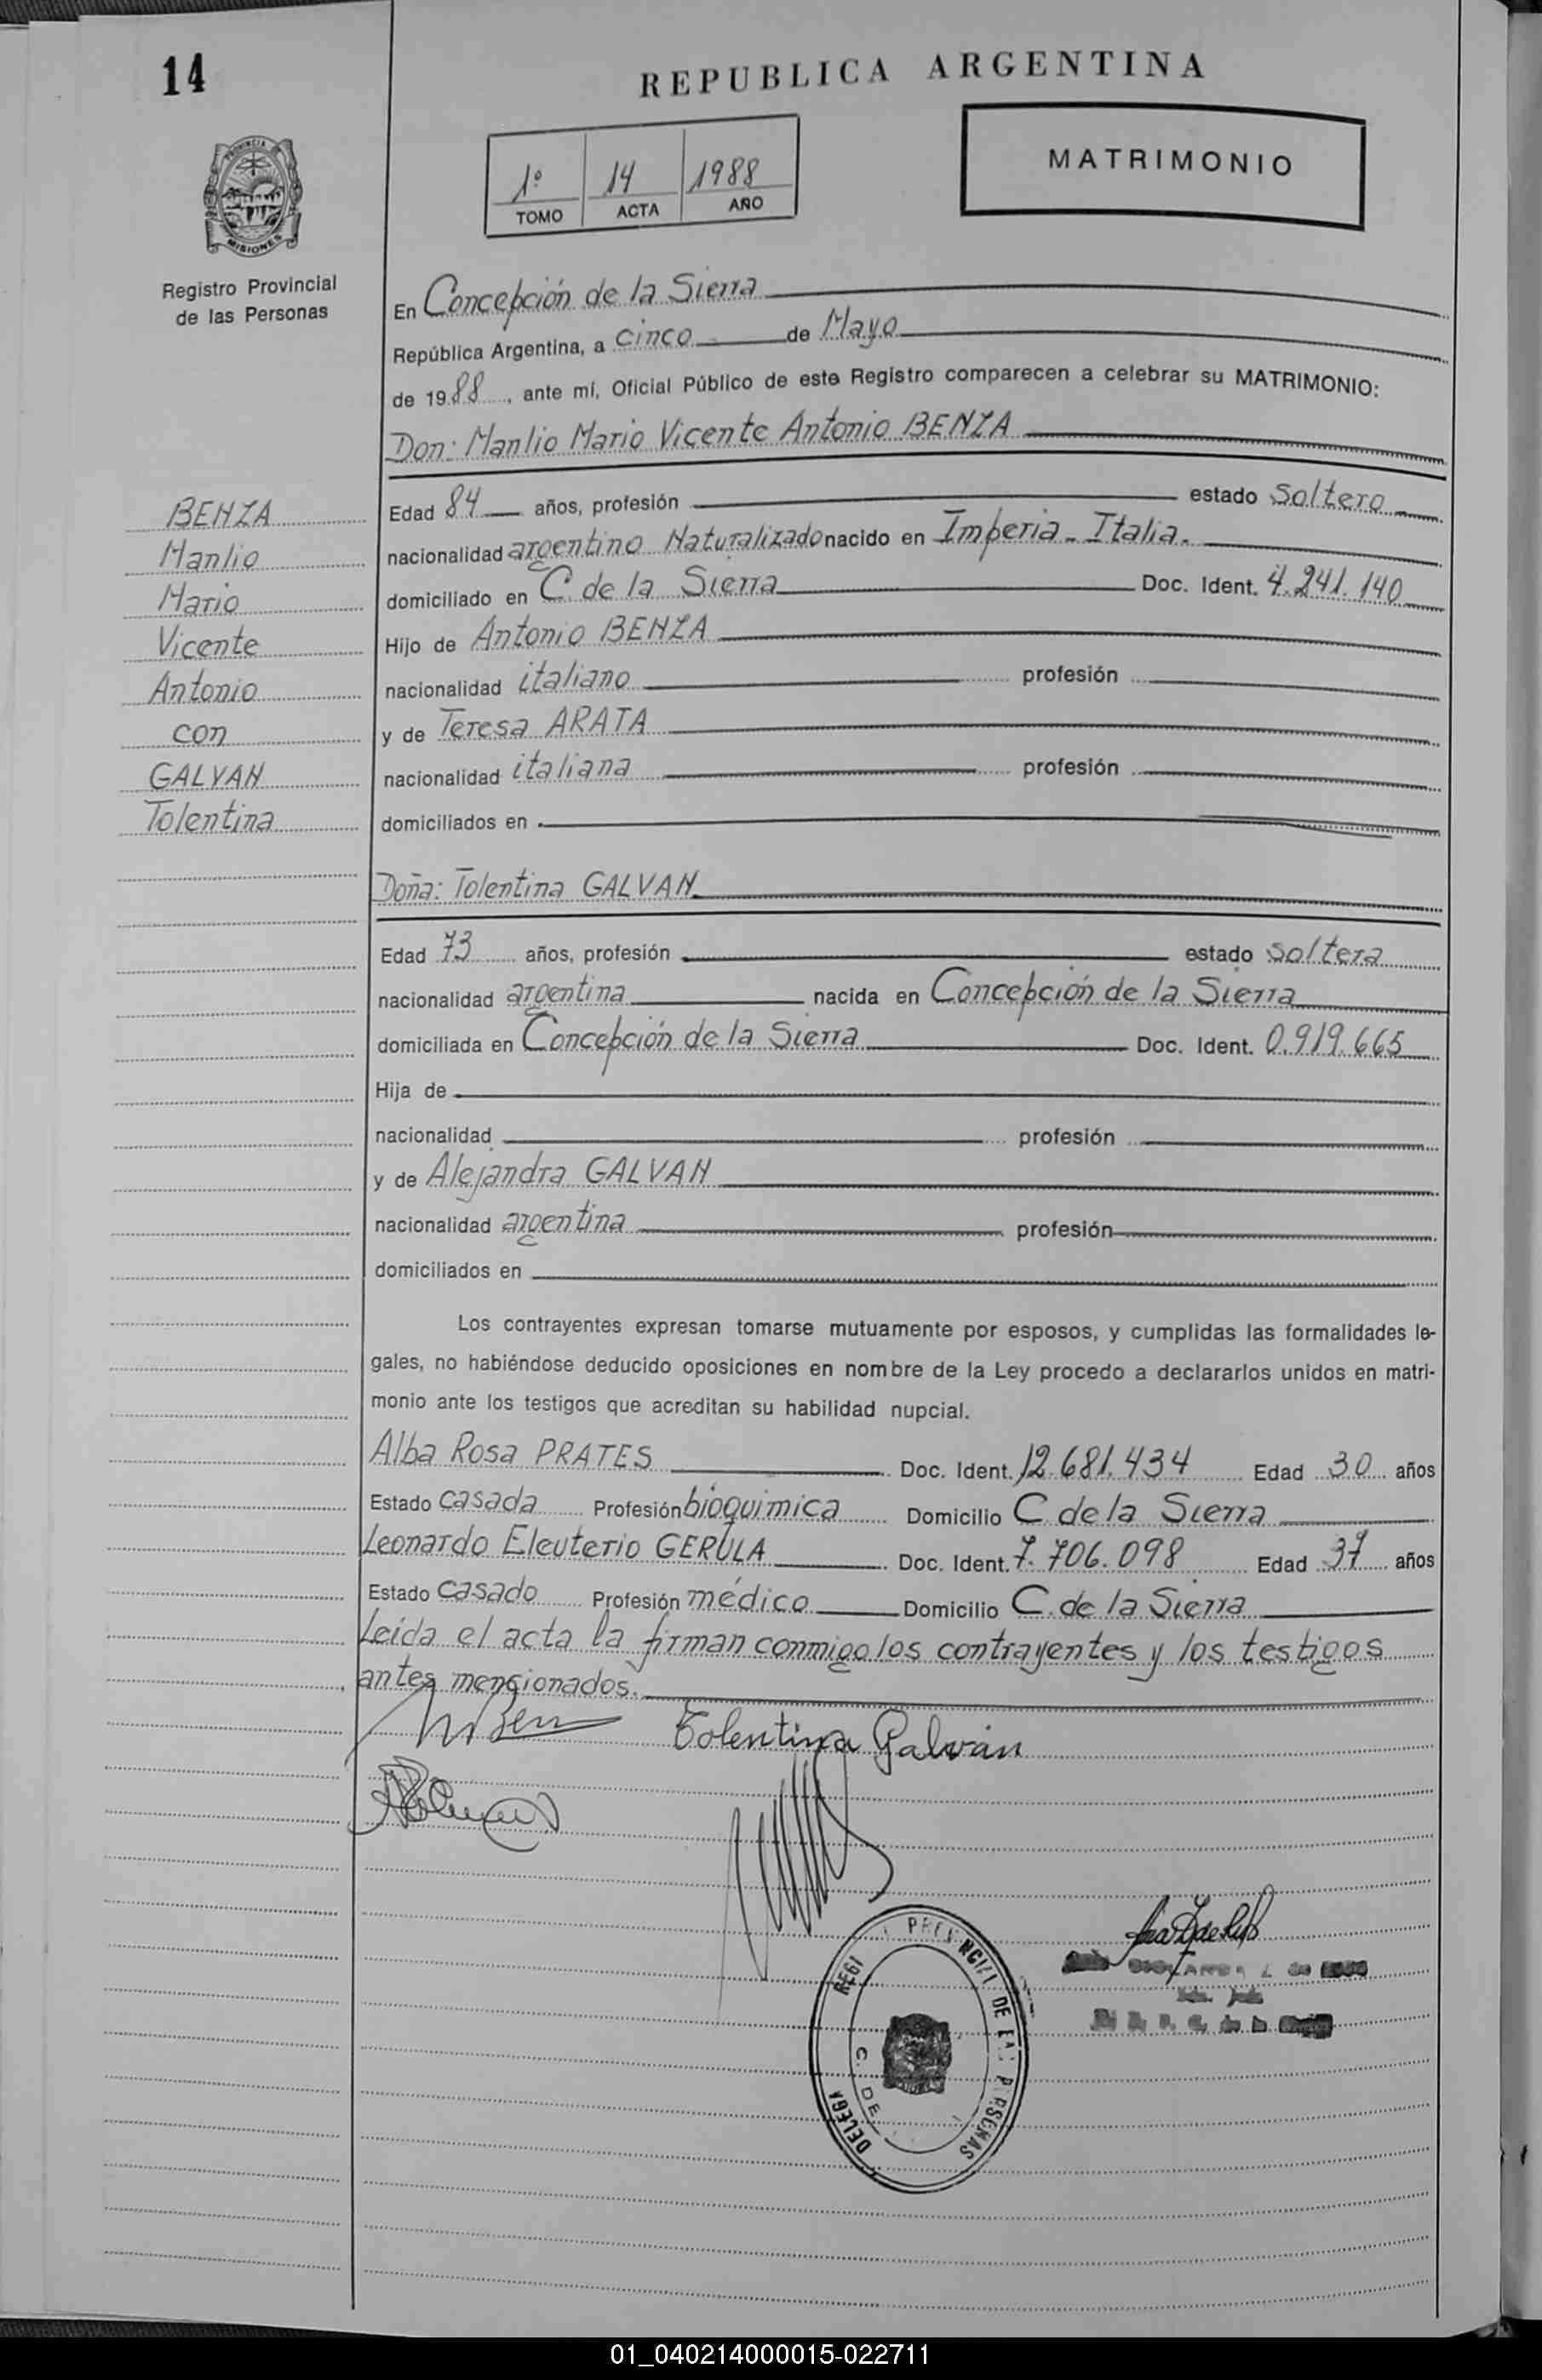 14
REPUBLICA ARGENTINA
1º 14 1988
TOMO ACTA AÑO
MATRIMONIO
PROVINCIA
MISIONES
Registro Provincial
de las Personas
En Concepción de la Sierra
República Argentina, a cinco de Mayo
de 1988, ante mí, Oficial Público de este Registro comparecen a celebrar su MATRIMONIO:
Don: Manlio Mario Vicente Antonio BENZA
BENZA
Manlio
Mario
Vicente
Antonio
con
GALVAN
Tolentina
Edad 84 años, profesión estado soltero
nacionalidad argentino Naturalizado nacido en Imperia - Italia.
domiciliado en C. de la Sierra Doc. Ident. 4.241.140
Hijo de Antonio BENZA
nacionalidad italiano profesión
y de Teresa ARATA
nacionalidad italiana profesión
domiciliados en
Doña: Tolentina GALVAN
Edad 73 años, profesión estado soltera
nacionalidad argentina nacida en Concepción de la Sierra
domiciliada en Concepción de la Sierra Doc. Ident. 0.919.665
Hija de
nacionalidad profesión
y de Alejandra GALVAN
nacionalidad argentina profesión
domiciliados en
Los contrayentes expresan tomarse mutuamente por esposos, y cumplidas las formalidades le-
gales, no habiéndose deducido oposiciones en nombre de la Ley procedo a declararlos unidos en matri-
monio ante los testigos que acreditan su habilidad nupcial.
Alba Rosa PRATES Doc. Ident. 12.681.434 Edad 30 años
Estado casada Profesión bioquimica Domicilio C de la Sierra
Leonardo Eleuterio GERULA Doc. Ident. 7.706.098 Edad años
Estado casado Profesión médico Domicilio C. de la Sierra
Leída el acta la firman conmigo los contrayentes y los testigos
antes mencionados.
Tolentina Galván
DE PERSONAS
C. DE
01_040214000015-022711